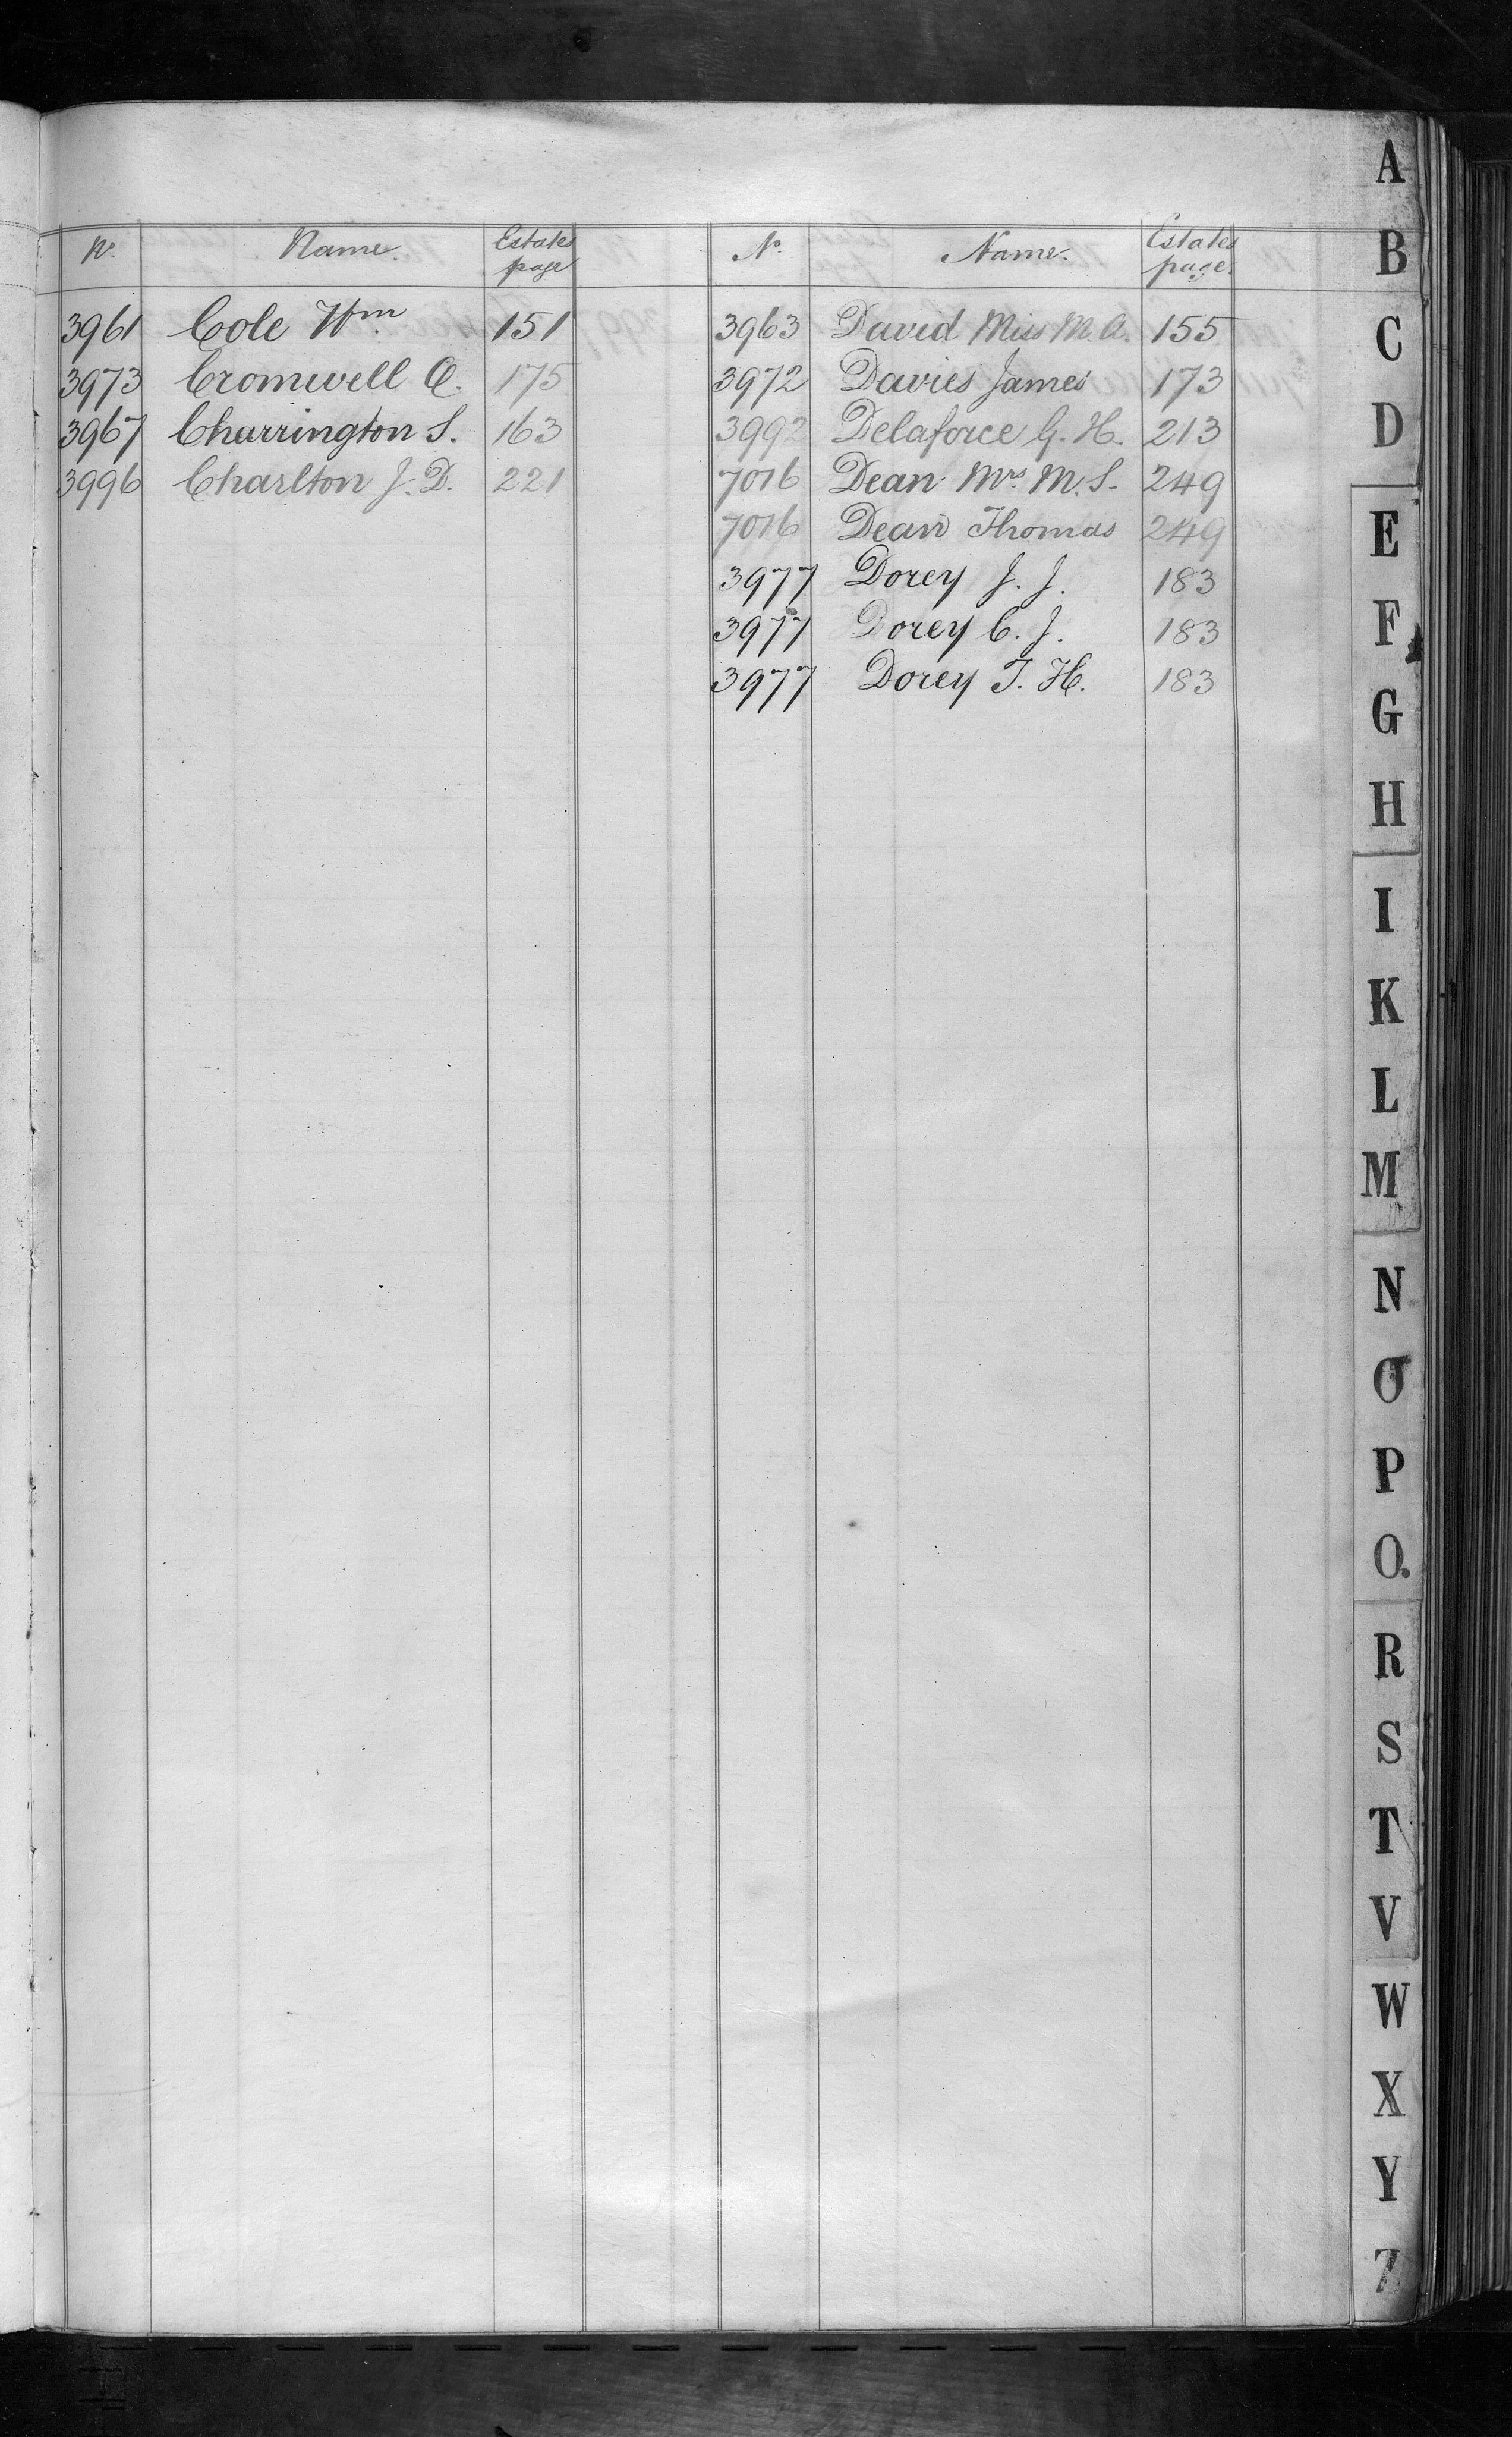 No. Name. Estate page
3961 Cole Wm 151
3973 Cromwell O. 175
3967 Charrington S. 163
3996 Charlton J. D. 221
No. Name. Estate page.
3963 David Miss M. A. 155
3972 Davies James 173
3992 Delaforce G. H. 213
7016 Dean Mrs M. S. 249
7016 Dean Thomas 249
3977 Dorey J. J. 183
3977 Dorey C. J. 183
3977 Dorey T. H. 183
A
B
C
D
E
F
G
H
I
K
L
M
N
O
P
Q.
R
S
T
V
W
X
Y
Z